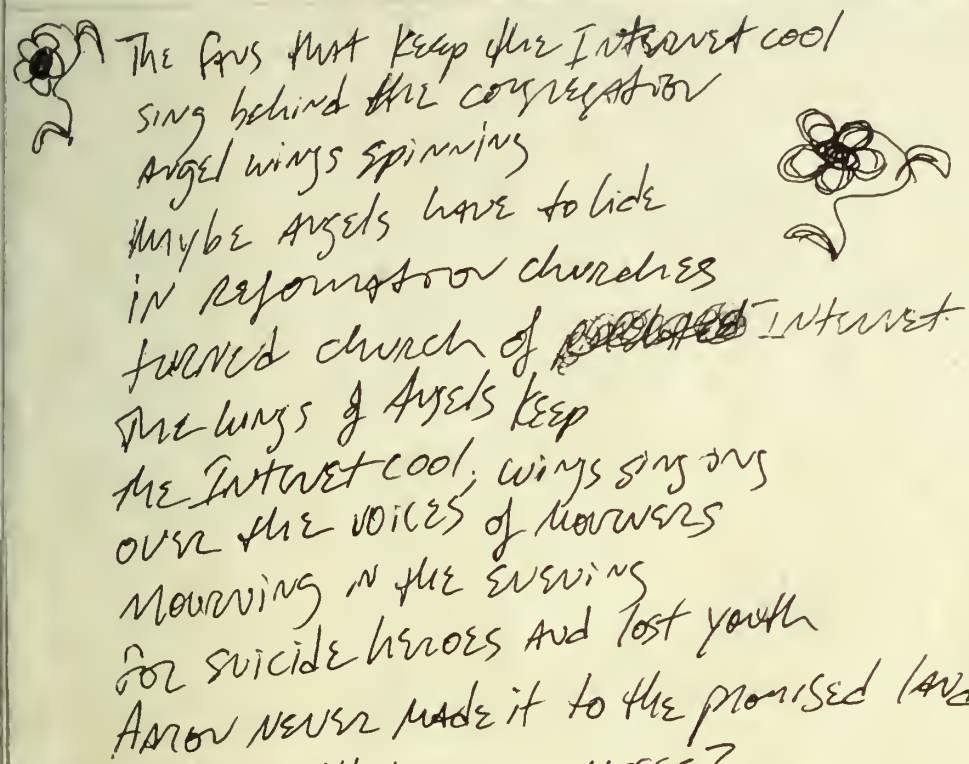 The fans that keep the Internet cool
sing behind the congregation
Angel wings spinning
Maybe Angels have to hide
in Reformation churches
turned church of Internet.
The wings of Angels keep
the Internet cool, wings singing
over the voices of mourners
mourning in the evening
for suicide heroes and lost youth
Aaron never made it to the promised land